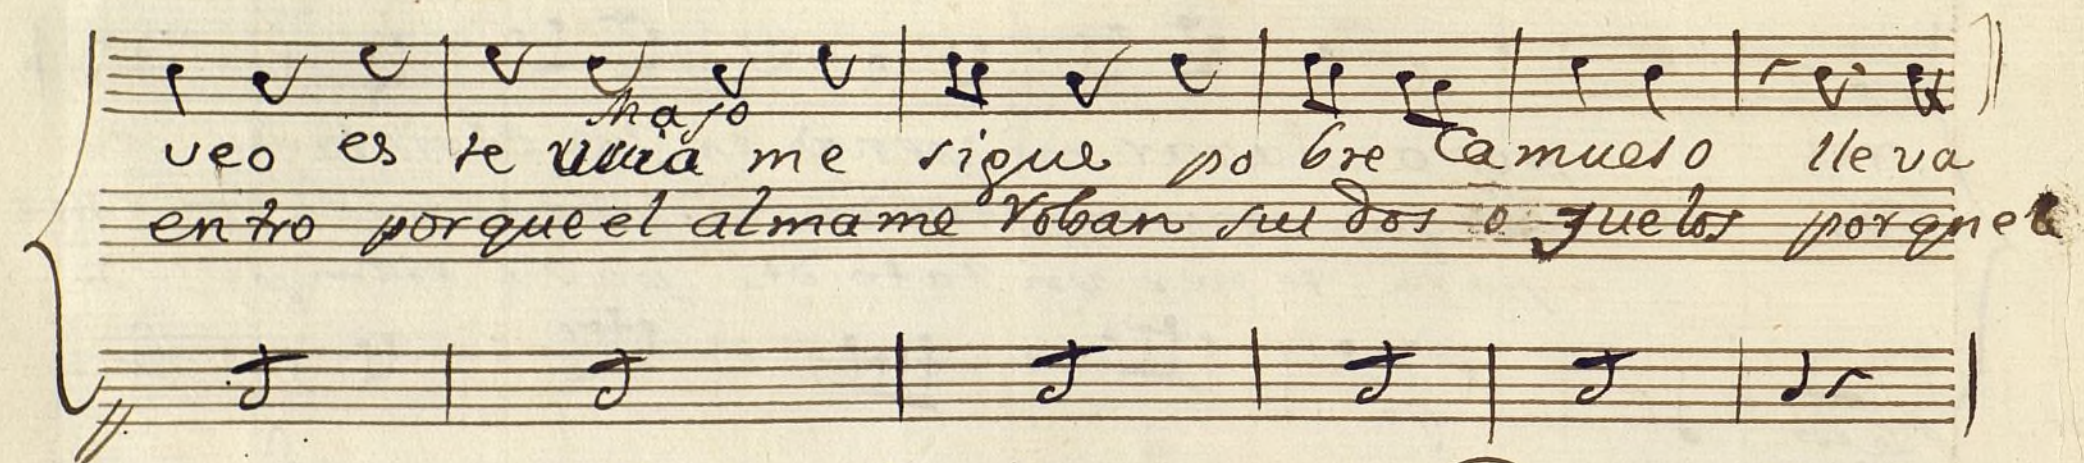 majo
veo es te me sigue po bre Camueso lleva
en tro porque el alma me Roban sus dos o juelos porque